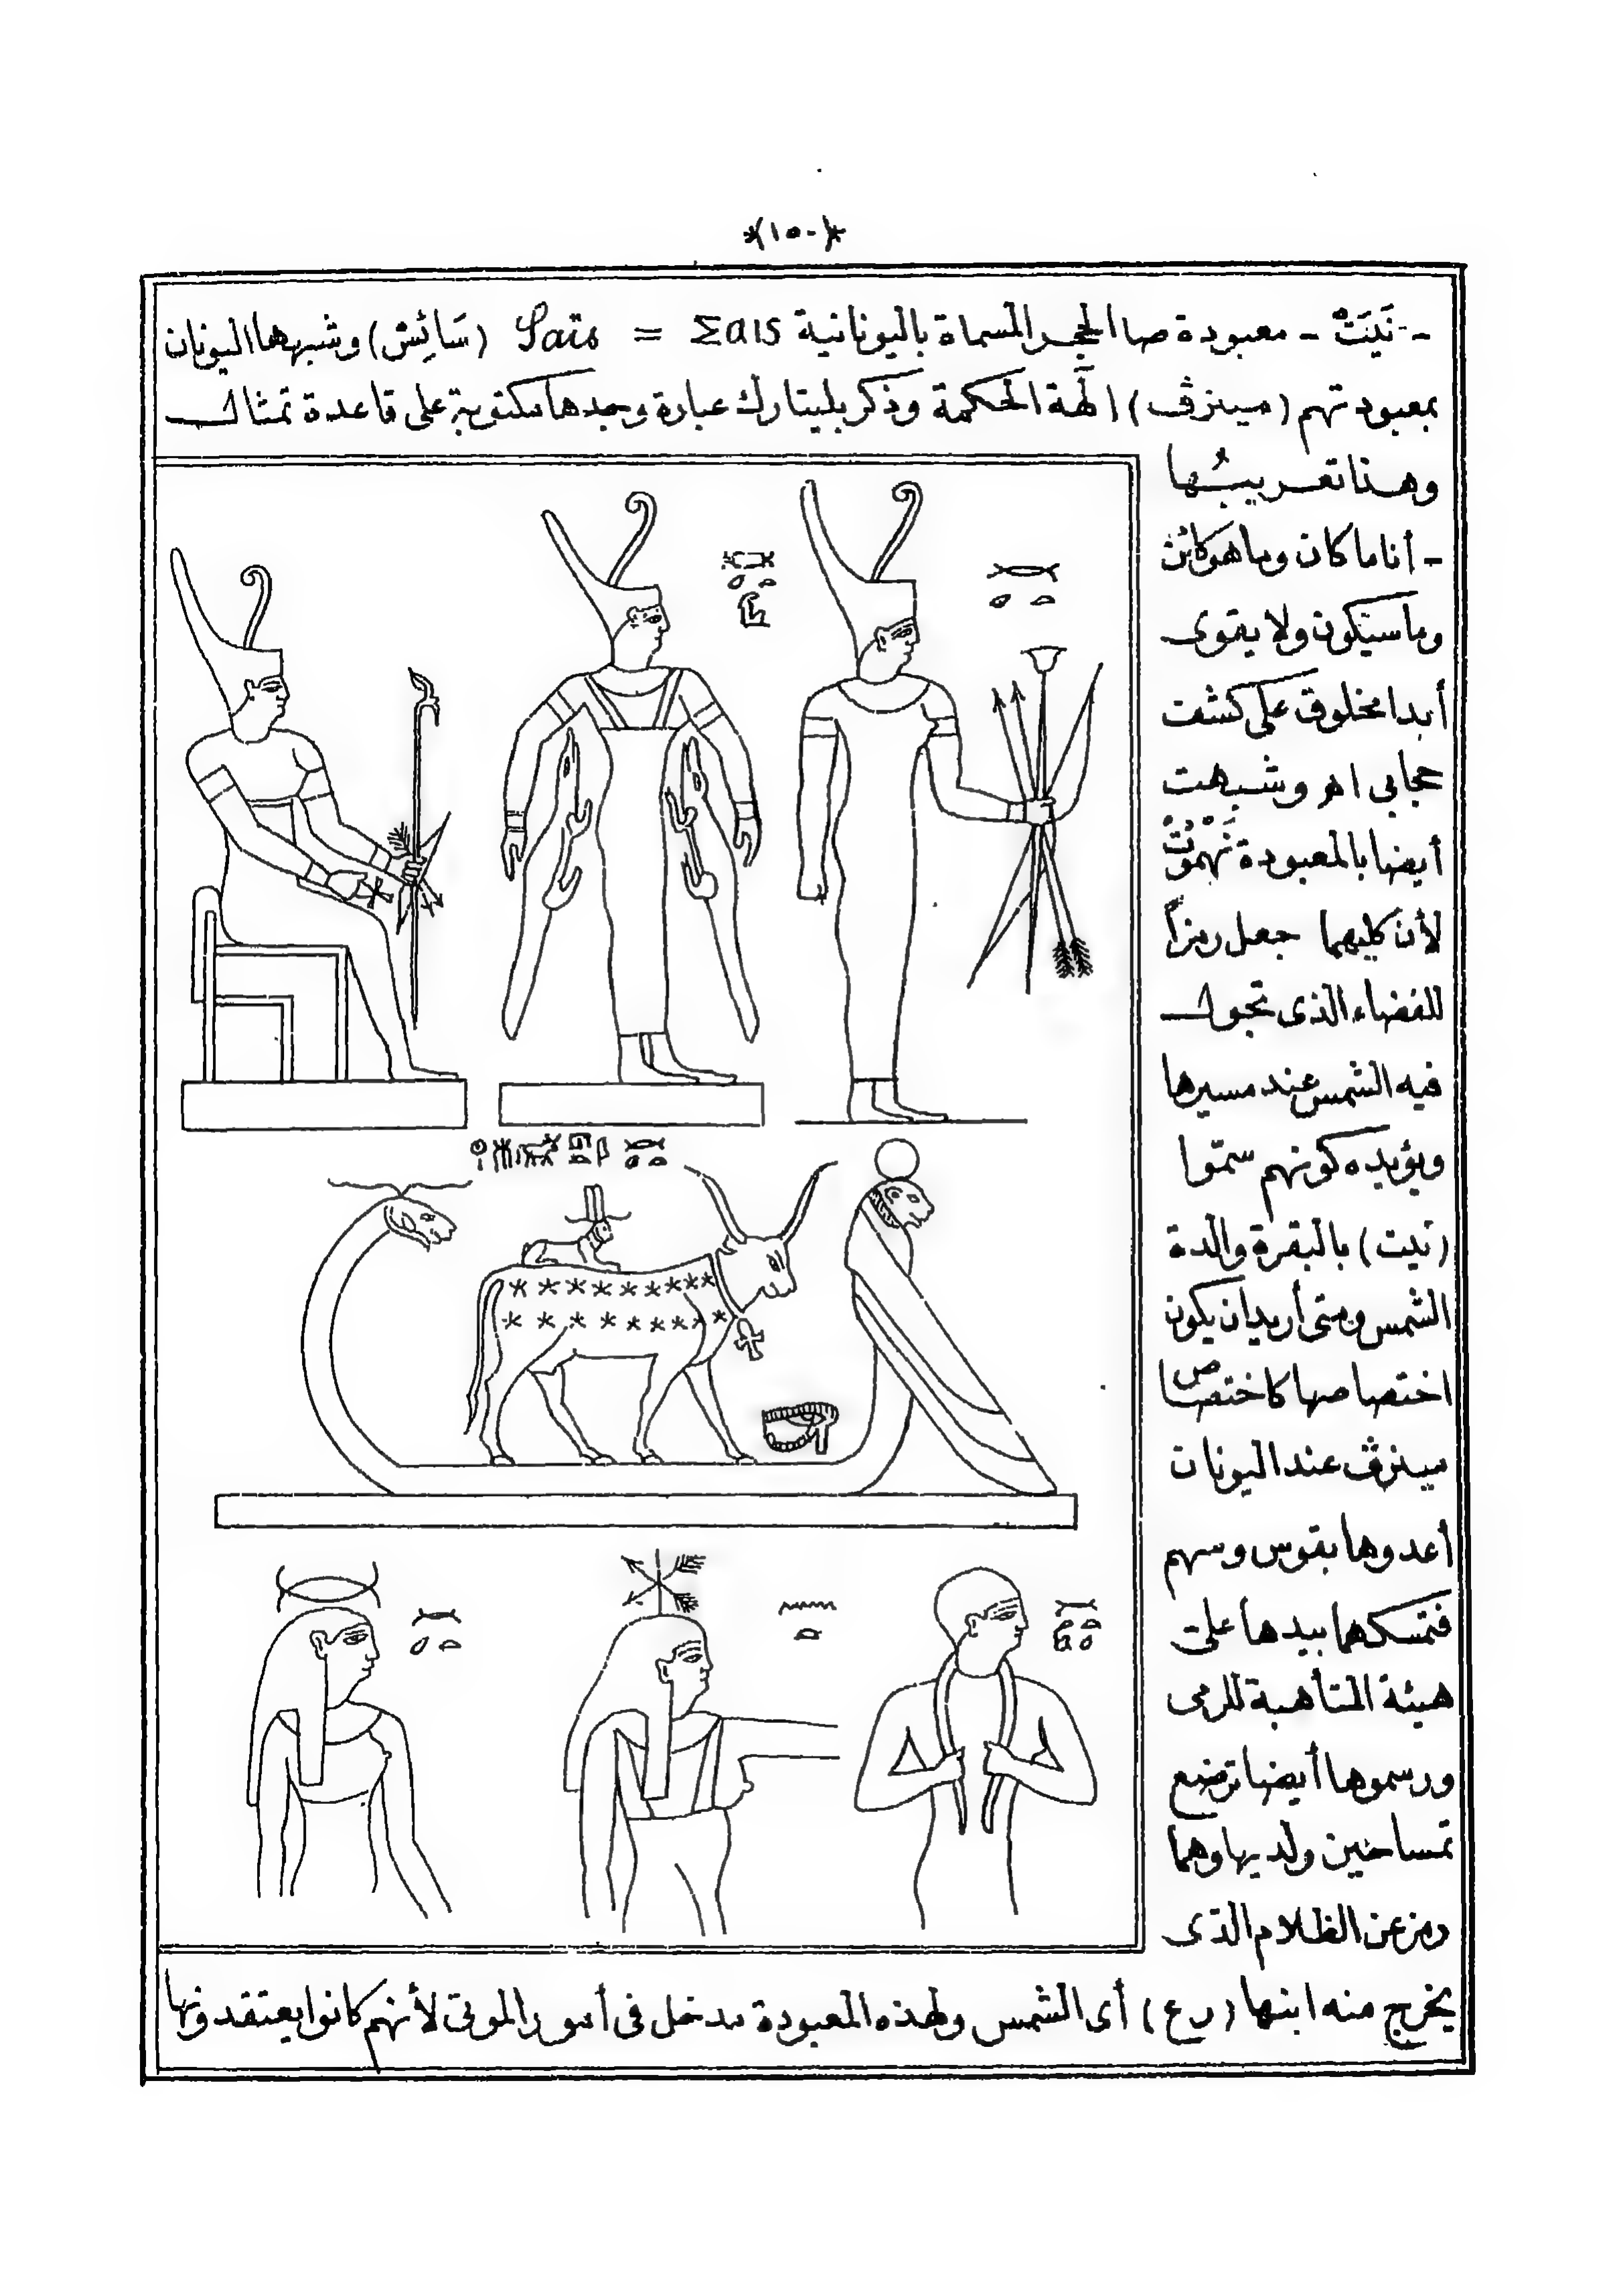 *(١٥٠)*
- نَيَتْ - معبودة صا الحجر المسماة باليونانية Σαις = Saïs (سَائِسْ) وشبهها اليونان
بمعبودتهم (مينرڤ) الٓهة الحكمة وذكر بليتارك عبارة وجدها مكتوبة على قاعدة تمثال
وهذا تعريبُها
- أنا ما كان وما هو كائن
وما سيكون ولا يقوى
أبدا مخلوق على كشف
حجابى اهـ وشبهت
أيضا بالمعبودة نَهْمُوتْ
لأن كليهما جعل رمزاً
للفضاء الذى تجول
فيه الشمس عند مسيرها
ويؤيده كونهم سمّوا
(نيت) بالبقرة والدة
الشمس ومتى أريد ان يكون
اختصاصها كاختصاص
مينرڤ عند اليونان
أعدوها بقوس وسهم
فتمسكهما بيدها على
هيئة المتأهبة للرمى
ورسموها أيضا ترضع
تمساحين ولديها وهما
رمز عن الظلام الذى
يخرج منه ابنها (رع) أى الشمس ولهذه المعبودة مدخل فى أمور الموتى لأنهم كانوا يعتقدونها